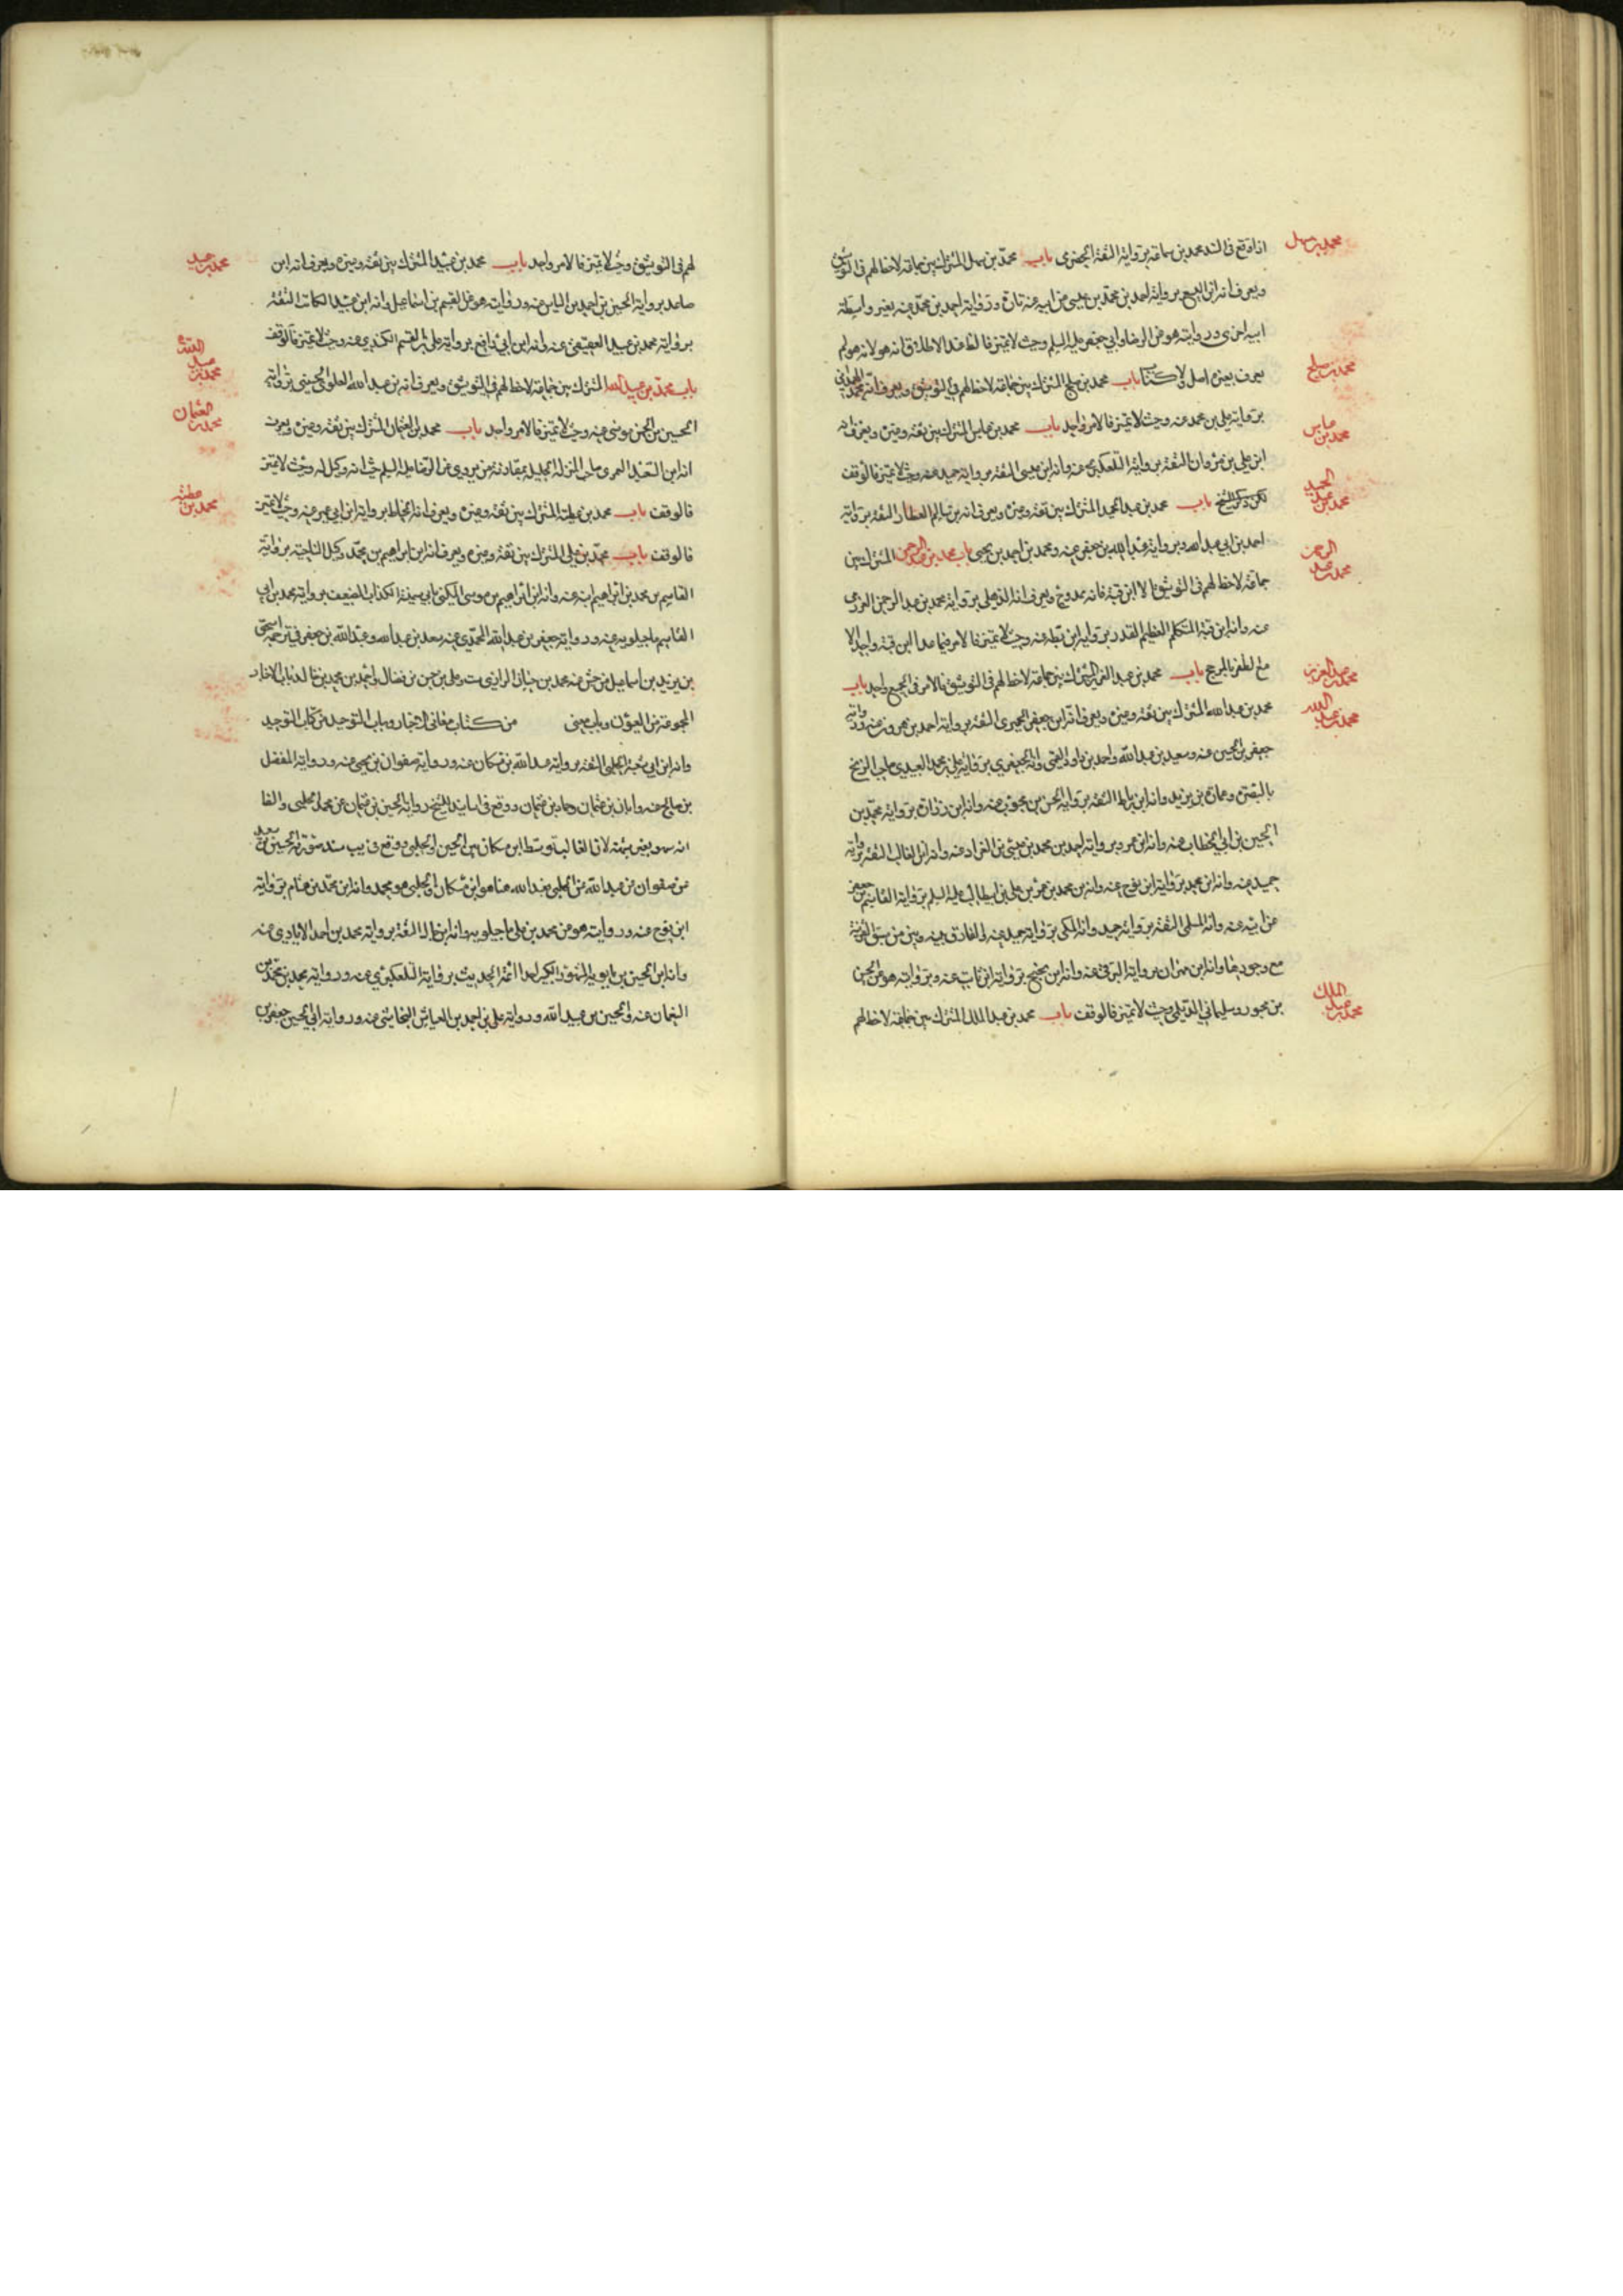 اذا وقع فى السند محمد بن سماعة برواية الثقة الحضرمى باب محمد بن سهل المشترك بين جماعة لاحظ لهم فى التوثيق
محمد بن سهل
ويعرف انه ابن اليسع برواية احمد بن محمد بن عيسى عن ابيه عنه تارة ورواية احمد بن محمد عنه بغير واسطة
ابيه اخرى وروايته هو عن الرضا وابي جعفر عليه السلم وحيث لا تميز فالظاهر الاطلاق انه هو لانه هو لم
يعرف بغيره اصل ولا كتاب باب محمد بن صالح المشترك بين جماعة لاحظ لهم فى التوثيق ويعرف انه الهمداني
محمد بن صالح
برواية علي بن محمد عنه وحيث لا تميز فالامر واحد باب محمد بن عباس المشترك بين ثقة وغيره ويعرف انه
محمد بن عباس
ابن علي بن مروان الثقة برواية التلعكبرى عنه وانه ابن عيسى الثقة برواية حميد عنه وحيث لا تميز فالوقف
لكن ذكر الشيخ باب محمد بن عبد الحميد المشترك بين ثقة وغيره ويعرف انه بن سالم العطار الثقة برواية
محمد بن عبد الحميد
احمد بن ابي عبد الله وبرواية عبد الله بن جعفر عنه ومحمد بن احمد بن يحيى باب محمد بن عبد الرحمن المشترك بين
محمد بن عبد الرحمن
جماعة لاحظ لهم فى التوثيق الا ابن قبة فانه ممدوح ويعرف انه الذهلى برواية محمد بن عبد الرحمن العزرمى
عنه وانه ابن قبة المتكلم العظيم القدر برواية ابن بطة عنه وحيث لا تميز فالامر فيما عدا ابن قبة واحد الا
مع الظفر بالمرجح باب محمد بن عبد العزيز المشترك بين جماعة لاحظ لهم فى التوثيق فالامر فى الجميع واحد باب
محمد بن عبد العزيز
محمد بن عبد الله المشترك بين ثقة وغيره ويعرف انه ابن جعفر الحميرى الثقة برواية احمد بن هرون عنه ورواية
محمد بن عبد الله
جعفر بن الحسين عنه وسعيد بن عبد الله واحمد بن داود القمى وانه الجعفري برواية علي بن محمد العبيدي صاحب الزنج
بالبصرة وعمارة بن يزيد وانه ابن رباط الثقة برواية الحسن بن محبوب عنه وانه ابن زرارة برواية محمد بن
الحسين بن ابي الخطاب عنه وانه ابن عمرو برواية احمد بن محمد بن عيسى بن العراد عنه وانه ابن غالب الثقة برواية
حميد عنه وانه ابن محمد برواية ابن نوح عنه وانه بن محمد بن عمر بن علي بن ابيطالب عليه السلم برواية القاسم بن جعفر
عن ابيه عنه وانه المسلى الثقة برواية حميد وانه المكى برواية حميد عنه والفارق بينه وبين من سبق القرينة
مع وجودها وانه ابن مهران برواية البرقي عنه وانه ابن نجيح برواية ابن ثابت عنه وبروايته هو عن الحسن
بن محبور وسليمان الديلمى وحيث لا تميز فالوقف باب محمد بن عبد الملك المشترك بين جماعة لاحظ لهم
محمد بن عبد الملك
لهم فى التوثيق وحيث لا تميز فالامر واحد باب محمد بن عبيد المشترك بين ثقة وغيره ويعرف انه ابن
محمد بن عبيد
صاعد برواية الحسين بن احمد بن الياس عنه وروايته هو عن القسم بن اسماعيل وانه ابن عبيد الكاتب الثقة
برواية محمد بن عبيد العقيقى عنه وانه ابن ابي رافع برواية علي بن القسم الكندي عنه وحيث لا تميز فالوقف
باب محمد بن عبيد الله المشترك بين جماعة لاحظ لهم فى التوثيق ويعرف انه بن عبد الله العلوى الحسينى برواية
محمد بن عبيد الله
الحسين بن الحسن موسى عنه وحيث لا تميز فالامر واحد باب محمد بن العثمان المشترك بين ثقة وغيره ويعرف
محمد بن العثمان
انه ابن السعيد العمرى صاحب المنزلة الجليلة بمقارنته من يروي عن الرضا عليه السلم حيث انه وكيل له وحيث لا تميز
فالوقف باب محمد بن عطية المشترك بين ثقة وغيره ويعرف انه الحناط برواية ابن ابي عمير عنه وحيث لا تميز
محمد بن عطيه
فالوقف باب محمد بن علي المشترك بين ثقة وغيره ويعرف انه ابن ابراهيم بن محمد وكيل الناحية برواية
القاسم بن محمد بن ابراهيم ابنه عنه وانه ابن ابراهيم بن موسى المكنى بابي سمينة الكذاب الضعيف برواية محمد بن ابي
القاسم ماجيلويه عنه ورواية جعفر بن عبد الله المحمدي عنه سعد بن عبد الله وعبد الله بن جعفر في ترجمة اسحق
بن يزيد بن اسماعيل محمد بن حسان الرازى وعلي بن حسن بن فضال واحمد بن محمد بن خالد باب الاخبار
المجموعة من العيون وباب معنى من كتاب معانى الاخبار وباب التوحيد من كتاب التوحيد
وانه ابن ابي شعبة الحلبى الثقة برواية عبد الله بن مسكان عنه ورواية صفوان بن يحيى عنه ورواية المفضل
بن صالح عنه وابان بن عثمان وحماد بن عثمان ووقع فى اسانيد الشيخ رواية الحسين بن عثمان عن محمد الحلبى والظا
انه سهو بغير شبهة لان الغالب توسط ابن مسكان بين الحسين والحلبى ووقع فى سند الحسين بن سعيد
عن صفوان عن عبد الله عن الحلبى فعبد الله هنا هو ابن مسكان والحلبى هو محمد وانه ابن محمد بن هشام برواية
ابن نوح عنه وروايته هو عن محمد بن علي ماجيلويه وانه ابن بلال الثقة برواية محمد بن احمد الايادي عنه
وانه ابن الحسين بن بابويه احد ائمة الحديث برواية التلعكبري عنه ورواية محمد بن محمد بن
النعمان عنه والحسين بن عبيد الله ورواية علي بن احمد بن العباس النجاشى عنه ورواية ابي الحسين جعفر بن